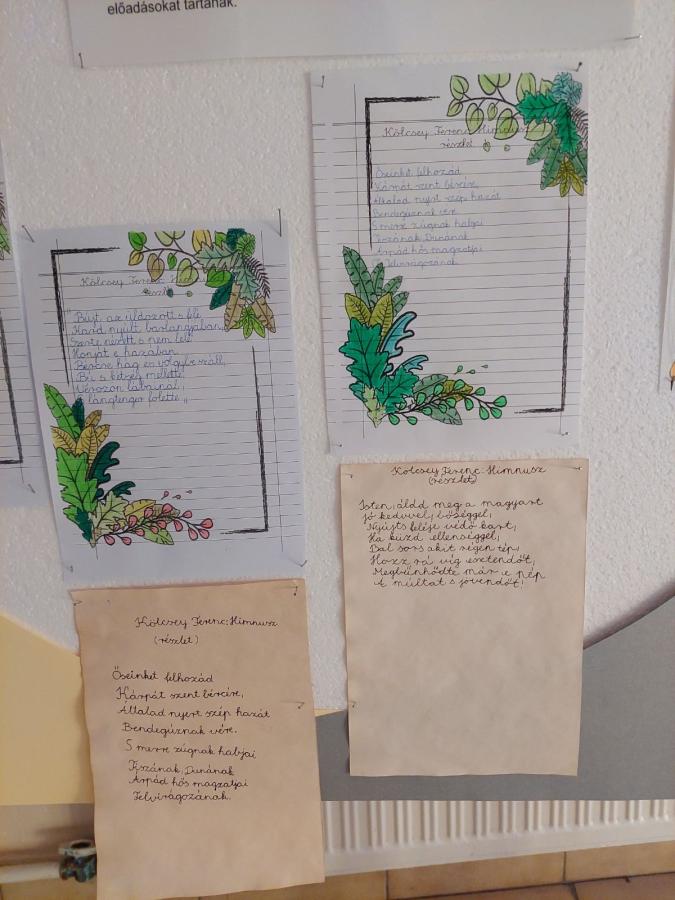 előadásokat tartanak.
Kölcsey Ferenc: Himnusz
részlet
Őseinket felhozád
Kárpát szent bércére,
Általad nyert szép hazát
Bendegúznak vére
S merre zúgnak habjai
Tiszának, Dunának
Árpád hős magzatjai
Felvirágozának.
Kölcsey Ferenc
részlet
Bújt az üldözött s felé
Kard nyúlt barlangjában,
Szerte nézett s nem lelé
Honját e hazában
Bércre hág en völgybe száll,
Bú s kétség mellette,
Vérözön lábainál,
s lángtenger fölette „
Kölcsey Ferenc: Himnusz
(részlet)
Isten, áldd meg a magyart
Jó kedvvel, bőséggel,
Nyújts feléje védő kart,
Ha küzd ellenséggel,
Bal sors akit régen tép,
Hozz rá víg esztendőt,
Megbűnhödte már e nép
A múltat s jövendőt!
Kölcsey Ferenc: Himnusz
(részlet)
Őseinket felhozád
Kárpát szent bércére,
Általad nyert szép hazát
Bendegúznak vére.
S merre zúgnak habjai
Tiszának, Dunának
Árpád hős magzatjai
Felvirágozának.